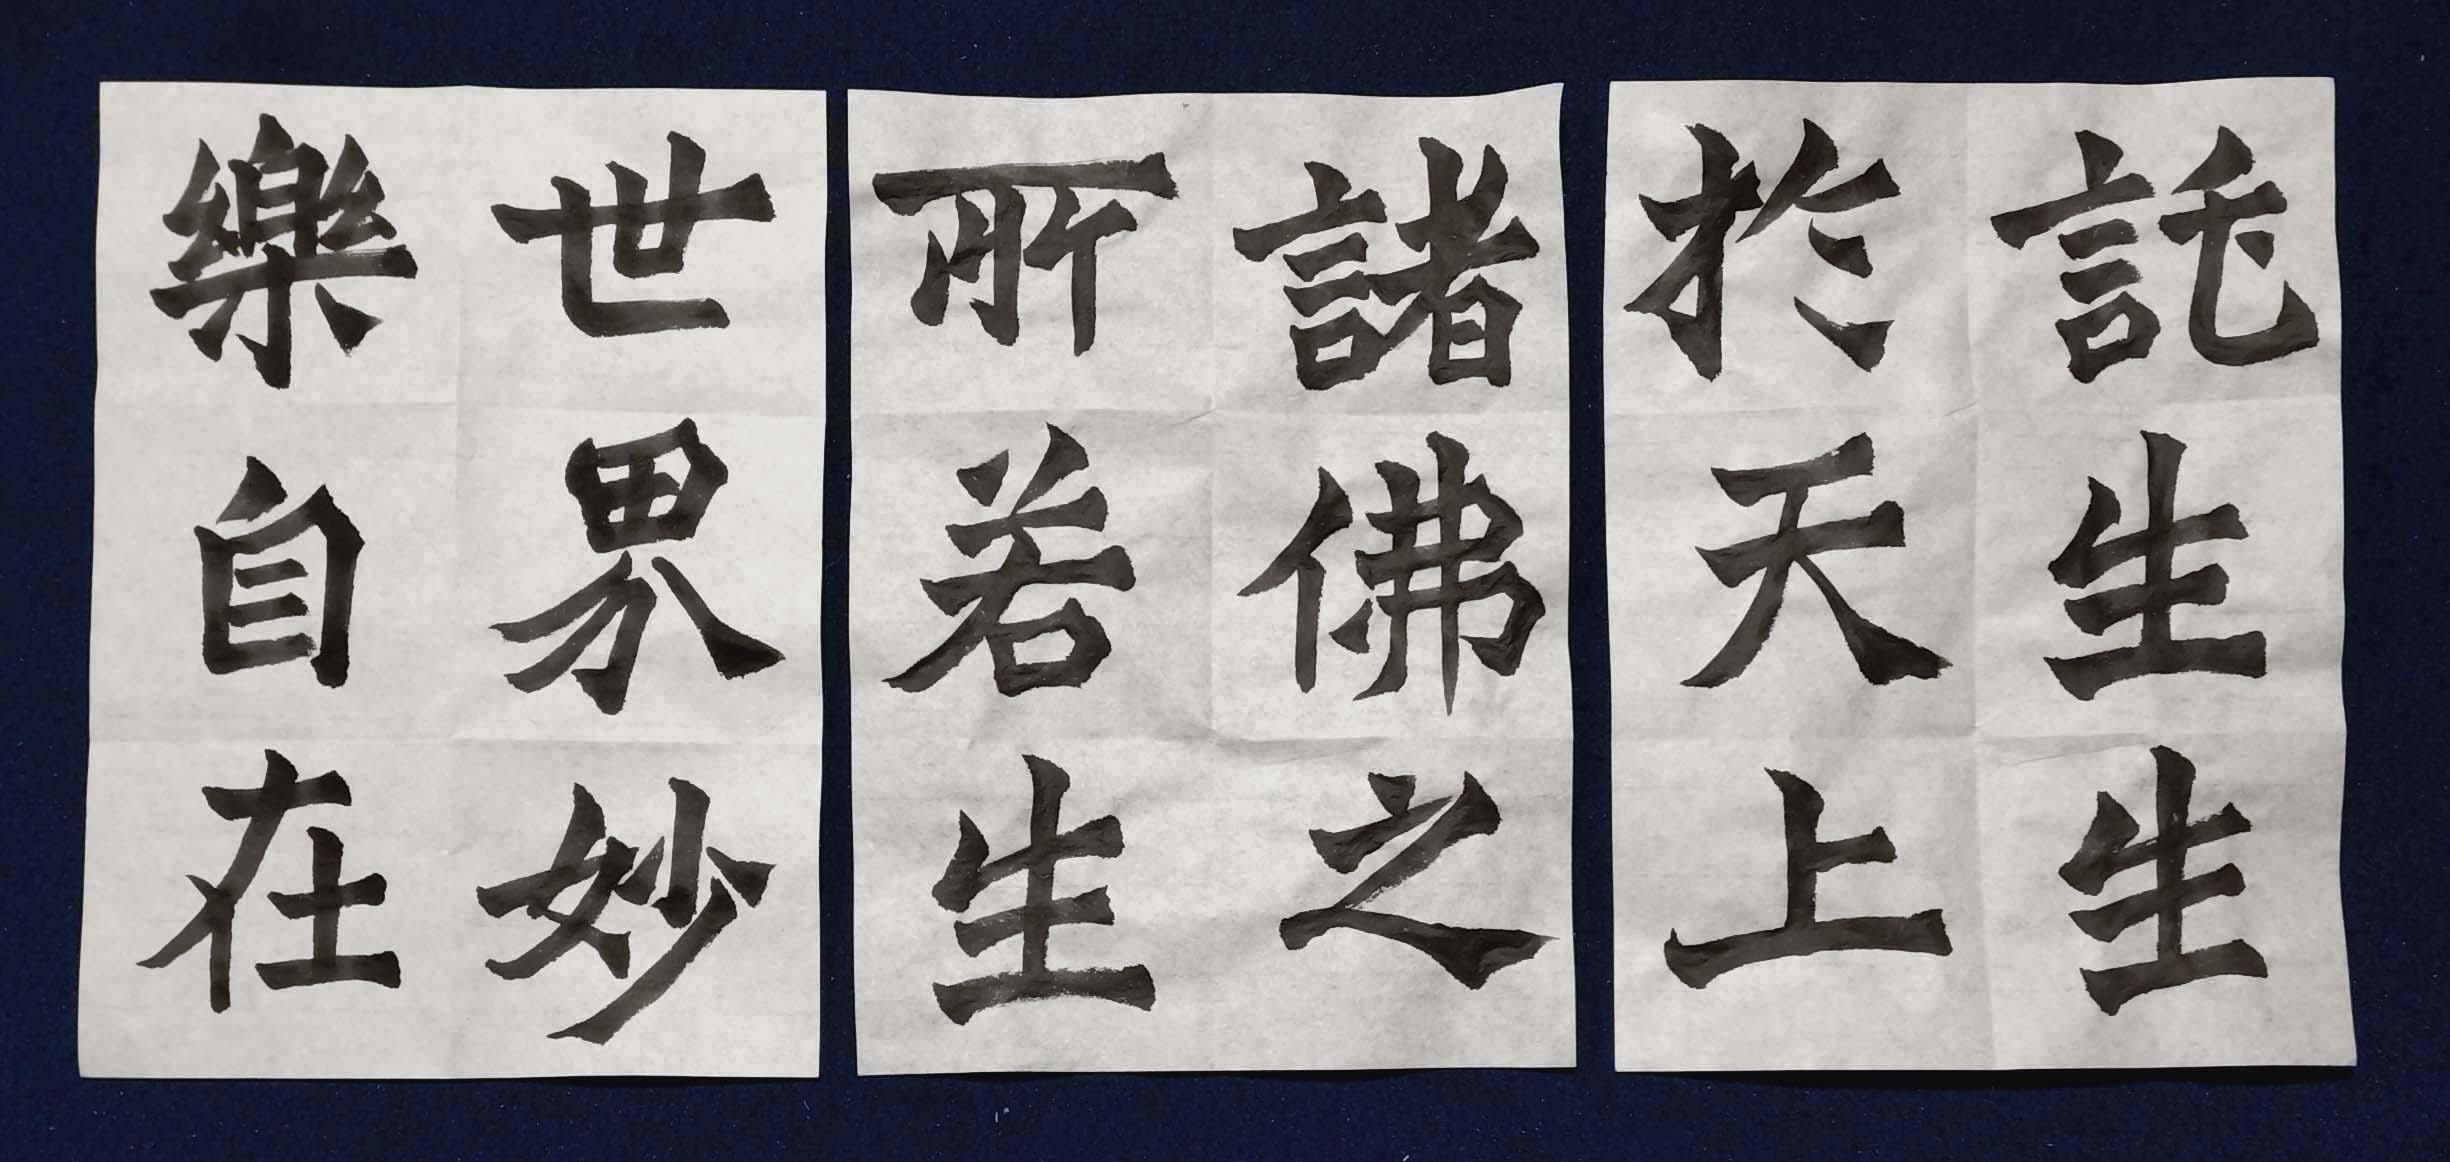 託生生
於天上
諸佛之
所若生
世界妙
樂自在